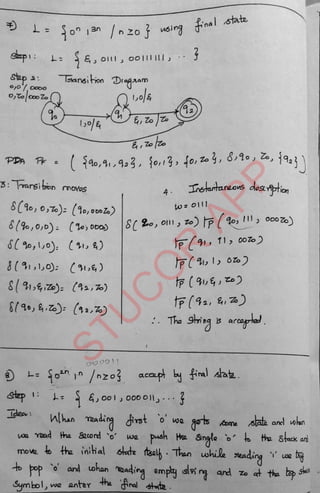 7) L = { 0ⁿ 1³ⁿ / n ≥ 0 } using final state
Step 1: L = { ε, 0111, 00111111, ... }
Step 2: Transition Diagram
0,0/0000
0,Z0/000Z0
1,0/ε
q0
1,0/ε
q1
ε, Z0/Z0
q2
ε, Z0/Z0
PDA P = ( {q0,q1,q2}, {0,1}, {0,Z0}, δ, q0, Z0, {q2} )
3: Transition moves
δ(q0, 0, Z0) = (q0, 000Z0)
δ(q0, 0, 0) = (q0, 0000)
δ(q0, 1, 0) = (q1, ε)
δ(q1, 1, 0) = (q1, ε)
δ(q1, ε, Z0) = (q2, Z0)
δ(q0, ε, Z0) = (q2, Z0)
4. Instantaneous description
w = 0111
δ(q0, 0111, Z0) ⊢P (q0, 111, 000Z0)
⊢P (q1, 11, 00Z0)
⊢P (q1, 1, 0Z0)
⊢P (q1, ε, Z0)
⊢P (q2, ε, Z0)
∴ The string is accepted.
STUCOR APP
000011
8) L = { 0²ⁿ 1ⁿ / n ≥ 0 } accept by final state.
Step 1: L = { ε, 001, 000011, ... }
Idea:
When reading first '0' we gets some state and when
we read the second '0' we push the single '0' to the stack and
move to the initial state itself. Then while reading '1' we try
to pop '0' and when reading empty string and Z0 at the top stack
symbol, we enter the final state.